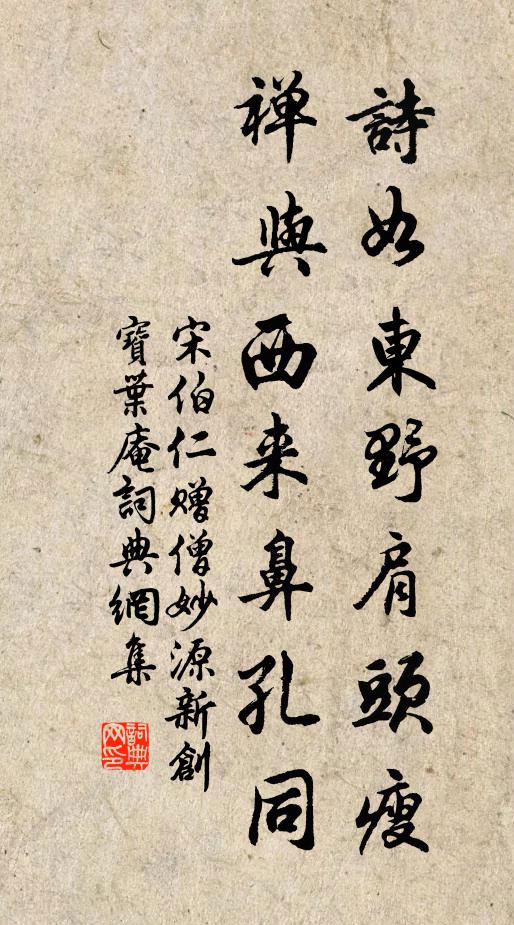 詩如東野肩頭瘦
禅與西来鼻孔同
宋伯仁贈僧妙源新創
寶葉庵詞典網集
詞典网印